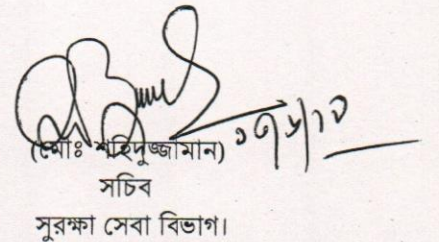 (মোঃ শহিদুজ্জামান)
সচিব
সুরক্ষা সেবা বিভাগ।